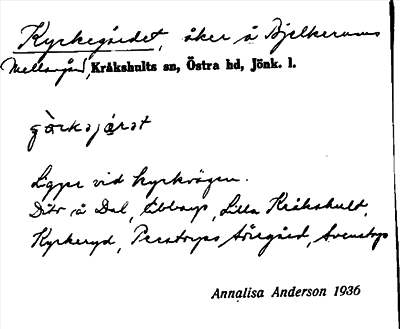 Kyrkegärdet, åker å Bjelkerums
Mellangård, Kråkshults sn, Östra hd, Jönk. l.
Ligger vid kyrkvägen.
Dito å Dal, Ebbarp, Lilla Kråkshult,
Kyrkeryd, Perstorps Sörgård, Svenstorp
Annalisa Anderson 1936